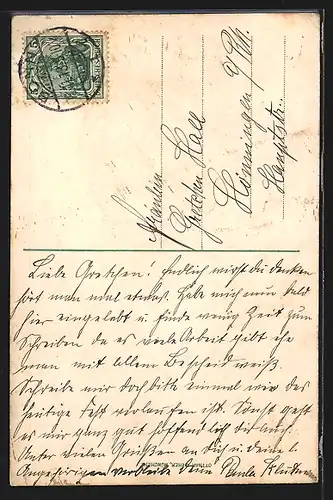 Fräulein
Gretchen Hall
Hönningen a/Rh.
Hauptstr.
Liebe Gretchen! Endlich wirst du denken
hört man mal etwas. Habe mich nun bald
hier eingelebt u. finde wenig Zeit zum
Schreiben da es viele Arbeit gibt ehe
man mit allem Bescheid weiß.
Schreibe mir doch bitte einmal wie das
heutige Fest verlaufen ist. Sonst geht
es mir ganz gut hoffentlich dir auch.
Unter vielen Grüßen an dich u. deine l.
Angehörigen verbleibe deine Paula